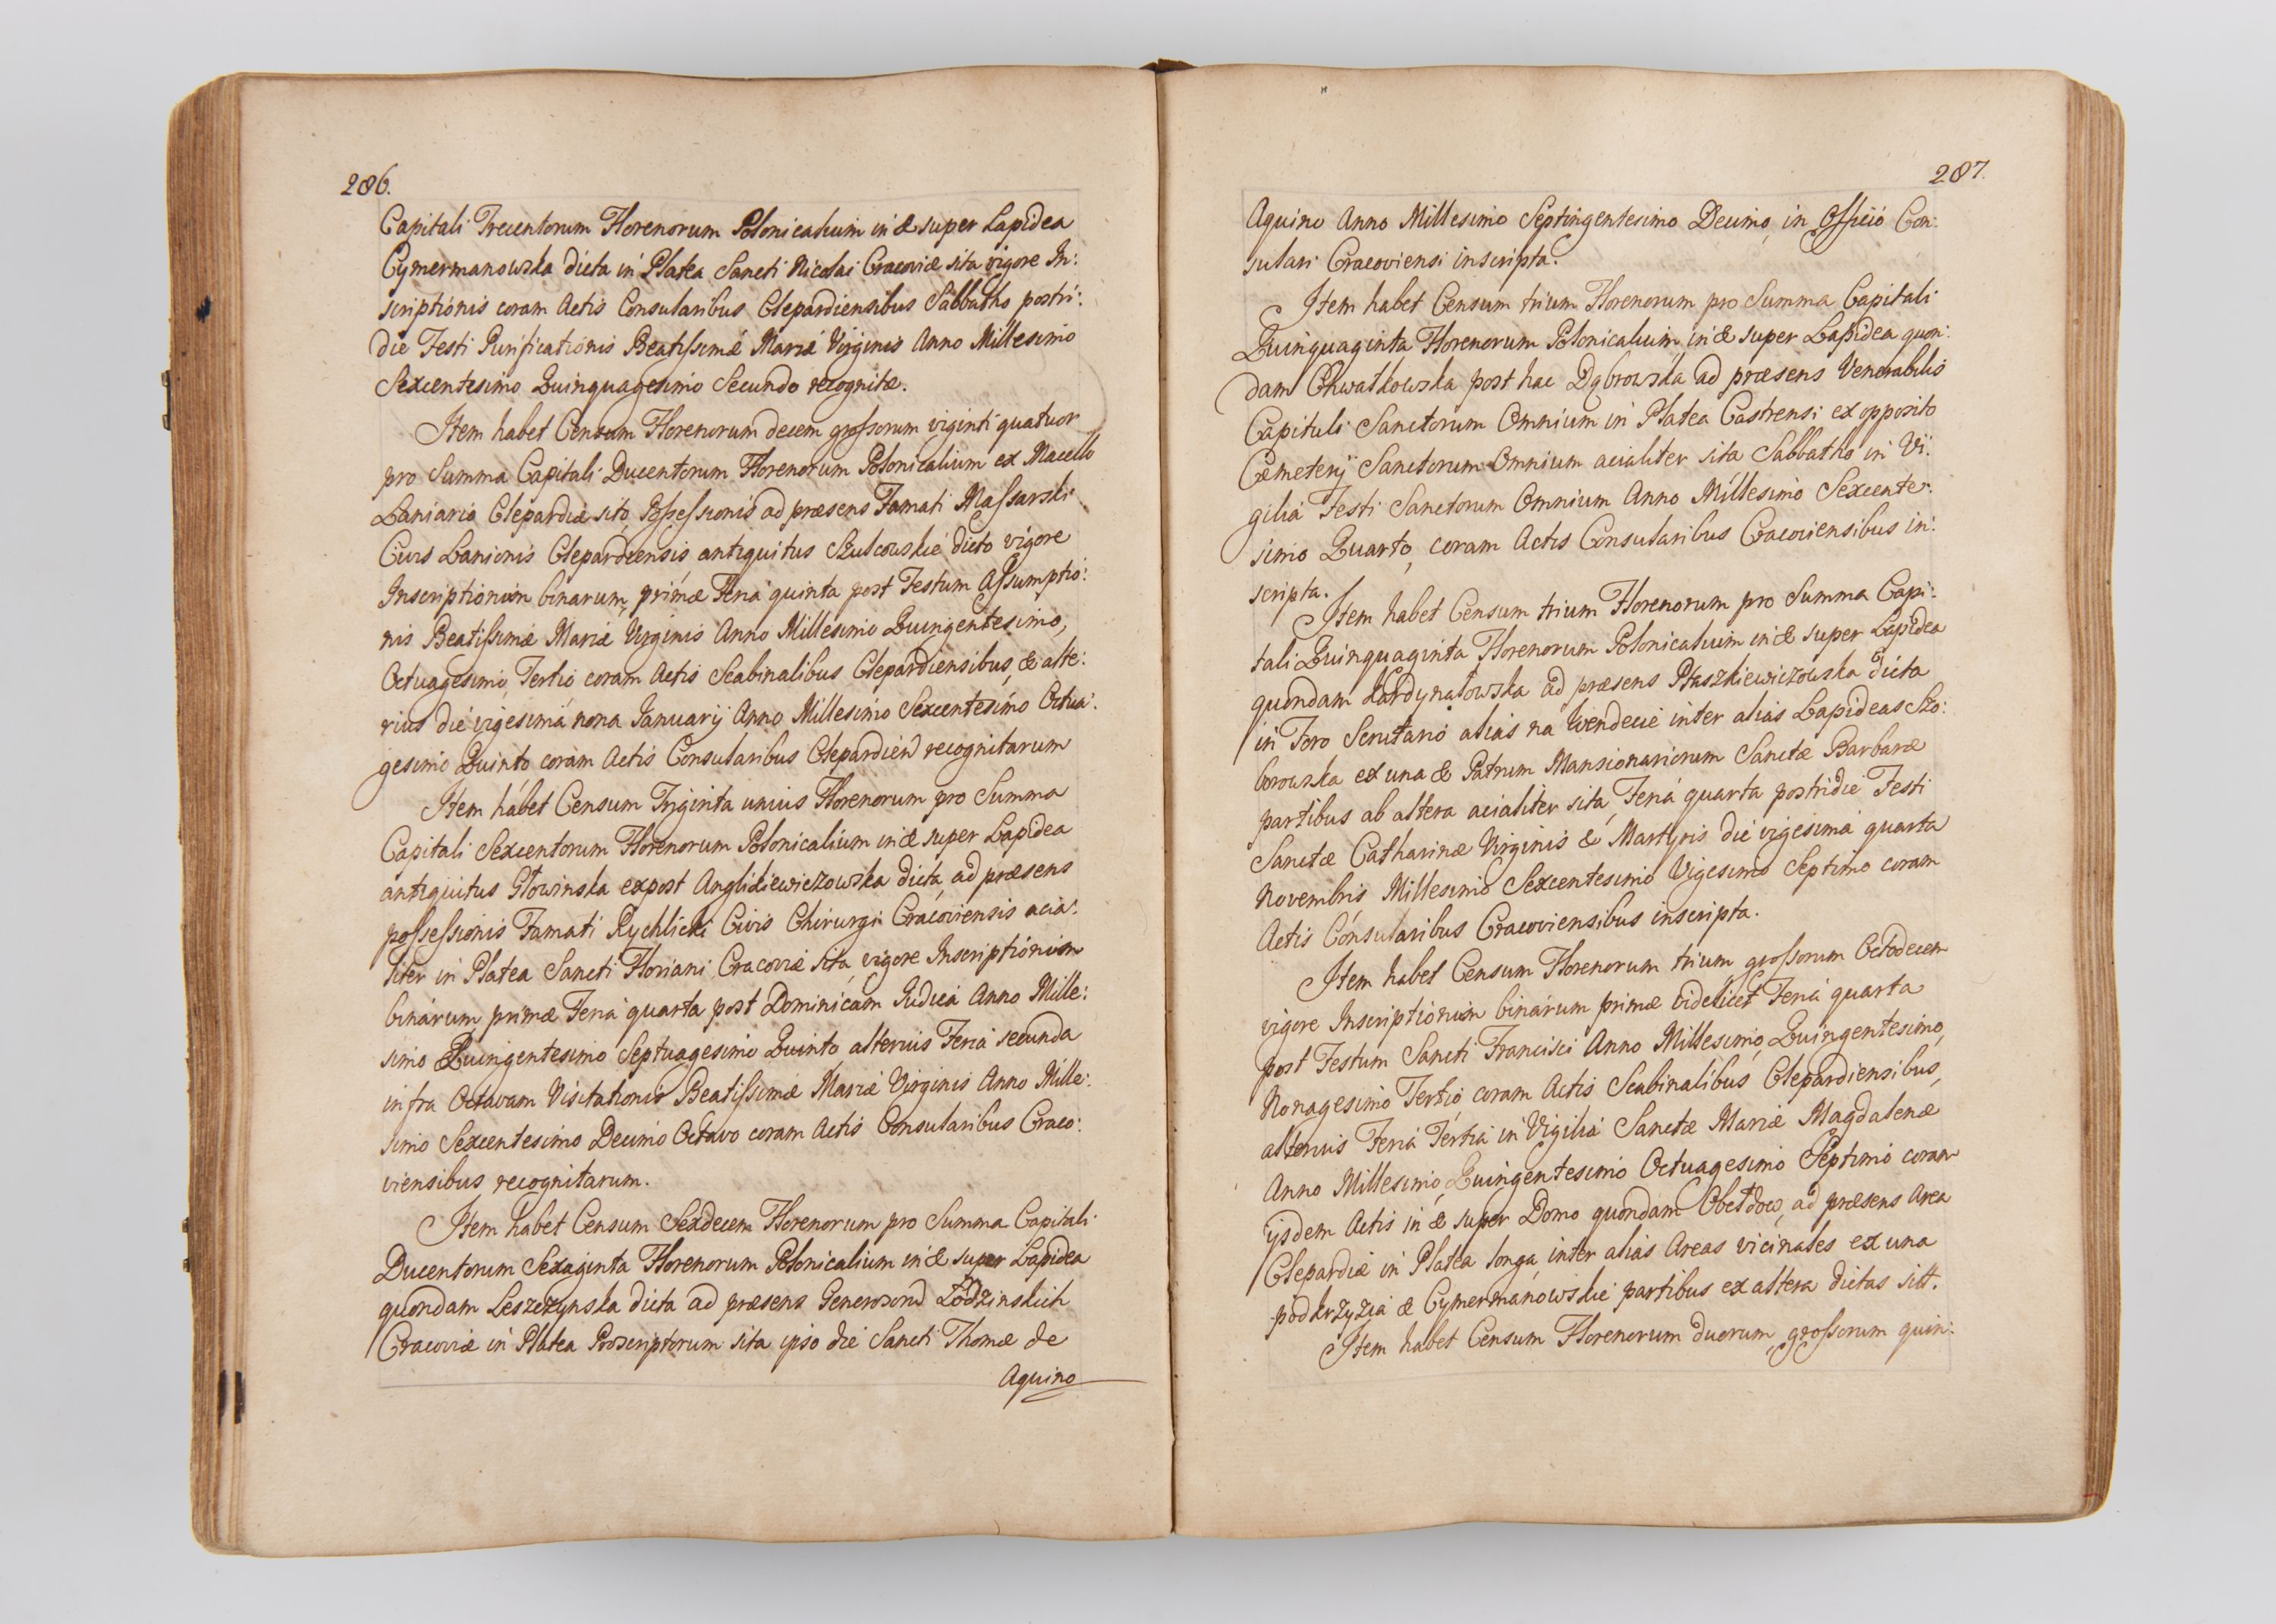 286.
Capitali Trecentorum Florenorum Polonicalium in & super Lapidea
Cymermanowska dicta in Platea Sancti Nicolai Cracoviæ sita vigore In:
scriptionis coram Actis Consularibus Clepardiensibus Sabbatho postri:
die Festi Purificationis Beatissimæ Mariæ Virginis Anno Millesimo
Sexcentesimo Quinquagesimo Secundo recognitæ.
Item habet Censum Florenorum decem grossorum viginti quatuor
pro Summa Capitali Ducentorum Florenorum Polonicalium ex Macello
Laniario Clepardiæ sito Possessionis ad præsens Famati Massarski
Civis Lanionis Clepardiensis antiquitus Szulcowskie dicto vigore
Inscriptionum binarum, primæ Feria quinta post Festum Assumptio:
nis Beatissimæ Mariæ Virginis Anno Millesimo Quingentesimo,
Octuagesimo, Tertio coram Actis Scabinalibus Clepardiensibus, & alte:
rius die vigesima nona Januarij Anno Millesimo Sexcentesimo Octua:
gesimo Quinto coram Actis Consularibus Clepardien recognitarum
Item habet Censum Tryginta unius Florenorum pro Summa
Capitali Sexcentorum Florenorum Polonicalium in & super Lapidea
antiquitus Głowinska expost Anglikiewiczowska dicta, ad præsens
possessionis Famati Rychlicki Civis Chirurgi Cracoviensis acia:
liter in Platea Sancti Floriani Cracoviæ sita, vigore Inscriptionum
binarum primæ Feria quarta post Dominicam Judica Anno Mille:
simo Quingentesimo Septuagesimo Quinto alterius Feria secunda
infra Octavam Visitationis Beatissimæ Mariæ Virginis Anno Mille:
simo Sexcentesimo Decimo Octavo coram Actis Consularibus Craco:
viensibus recognitarum.
Item habet Censum Sexdecem Florenorum pro Summa Capitali
Ducentorum Sexaginta Florenorum Polonicalium in & super Lapidea
quondam Leszczynska dicta ad præsens Generosord Łodzinskich
Cracoviæ in Platea Proscriptorum sita ipso die Sancti Thomæ de
Aquino
287.
Aquino Anno Millesimo Septingentesimo Decimo, in Officio Con:
sulari Cracoviensi inscripta.
Item habet Censum trium Florenorum pro Summa Capitali
Quinquaginta Florenorum Polonicalium in & super Lapidea quon:
dam Chwałkowska post hac Dąbrowska ad præsens Venerabilis
Capituli Sanctorum Omnium in Platea Castrensi ex opposito
Cæmeterij Sanctorum Omnium acialiter sita Sabbatho in Vi:
gilia Festi Sanctorum Omnium Anno Millesimo Sexcente:
simo Quarto, coram Actis Consularibus Cracoviensibus in:
scripta.
Item habet Censum trium Florenorum pro Summa Capi:
tali Quinquaginta Florenorum Polonicalium in & super Lapidea
quondam Kardynałowska ad præsens Ptaszkiewiczowska dicta
in Foro Scrutario alias na Wendecie inter alias Lapideas Szo:
browska ex una & Patrum Mansionariorum Sanctæ Barbaræ
partibus ab altera acialiter sita, Feria quarta postridie Festi
Sanctæ Catharinæ Virginis & Martyris die vigesima quarta
Novembris Millesimo Sexcentesimo Vigesimo Septimo coram
Actis Consularibus Cracoviensibus inscripta.
Item habet Censum Florenorum trium, grossorum Octodecem
vigore Inscriptionum binarum primæ videlicet Feria quarta
post Festum Sancti Francisci Anno Millesimo, Quingentesimo,
Nonagesimo Tertio coram Actis Scabinalibus Clepardiensibus,
alterius Feria Tertia in Vigilia Sanctæ Mariæ Magdalenæ
Anno Millesimo, Quingentesimo Octuagesimo Septimo coram
ijsdem Actis in & super Domo quondam ad præsens Area
Clepardiæ in Platea longa, inter alias Areas vicinales ex una
podkrzyzia & Cymermanowskie partibus ex altera dictas sitt.
Item habet Censum Florenorum duorum, grossorum quin: